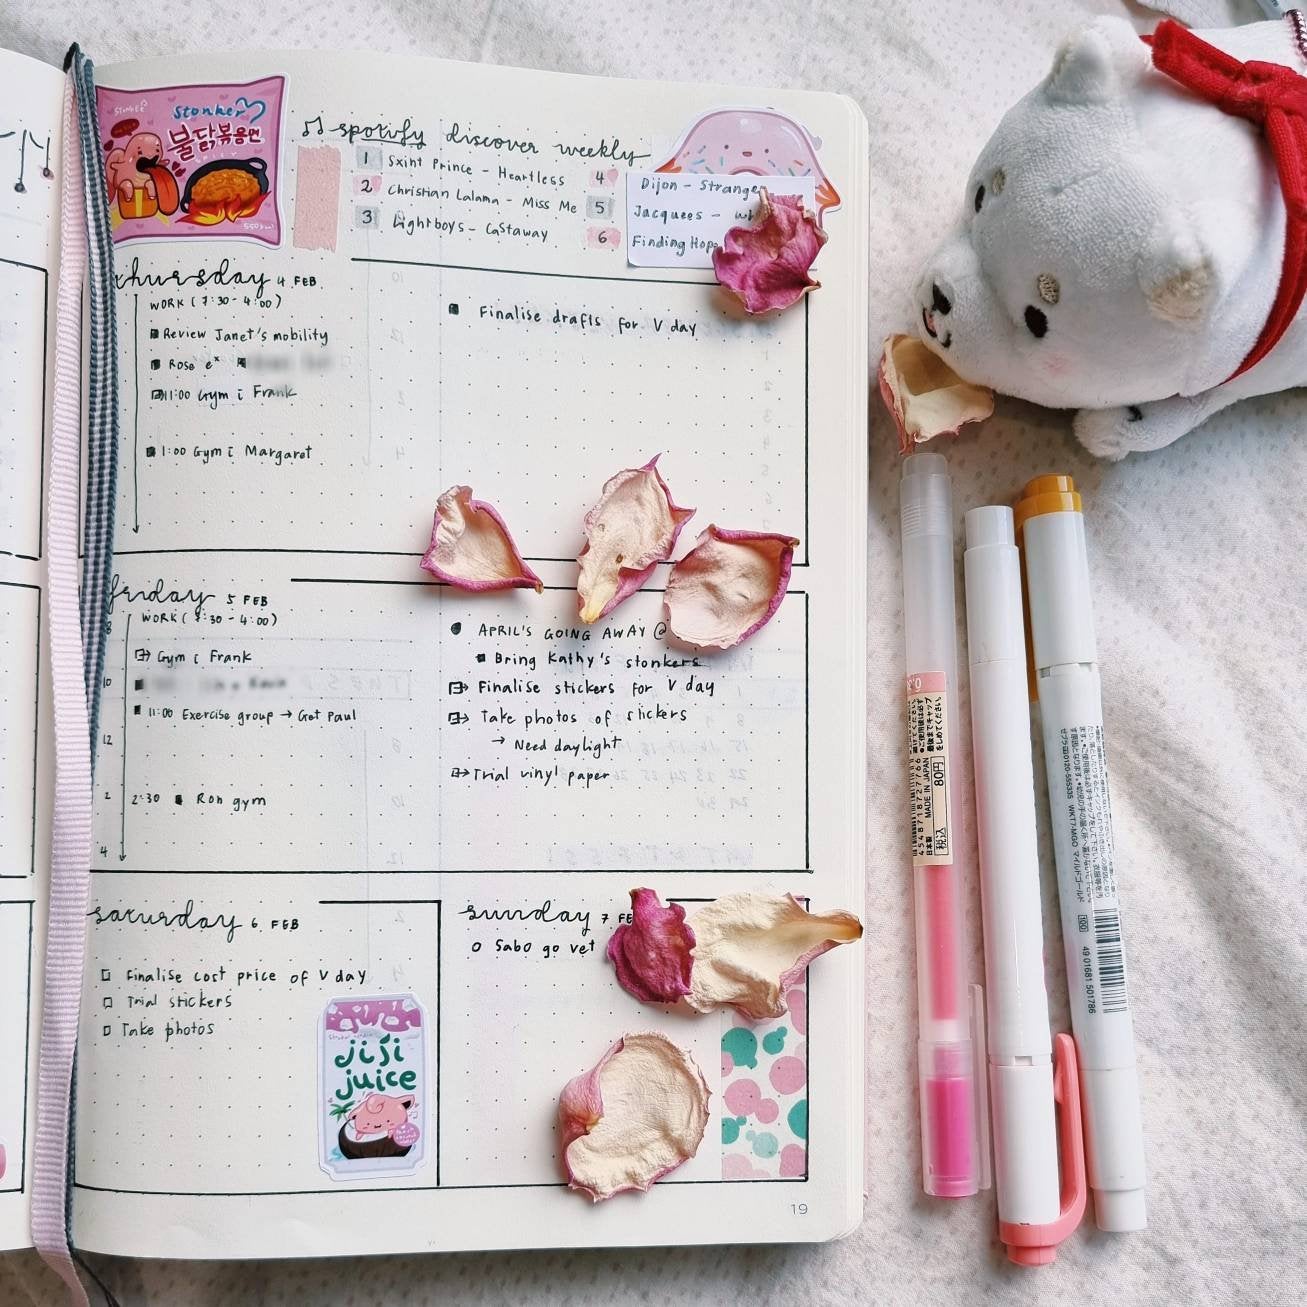 Stonker
불닭볶음면
spotify discover weekly
1 Sxint Prince - Heartless
2 Christian Lalama - Miss Me
3 Lightboys - Castaway
4 Dijon - Strange
5 Jacquees -
6 Finding Hope
thursday 4 FEB
WORK (7:30 - 4:00)
Review Janet's mobility
Rose eˣ
11:00 Gym c̄ Frank
1:00 Gym c̄ Margaret
Finalise drafts for V day
friday 5 FEB
WORK (7:30 - 4:00)
Gym c̄ Frank
11:00 Exercise group → Get Paul
2:30 Ron gym
8
10
12
2
4
APRIL'S GOING AWAY @
Bring Kathy's stonkers
Finalise stickers for V day
Take photos of stickers
→ Need daylight
Trial vinyl paper
saturday 6 FEB
Finalise cost price of V day
Trial stickers
Take photos
jiji
juice
sunday 7 FE
Sabo go vet
19
MADE IN JAPAN
日本製
80円
税込
4548718727766
WKT7-MGO マイルドゴールド
100
49 01681 501786